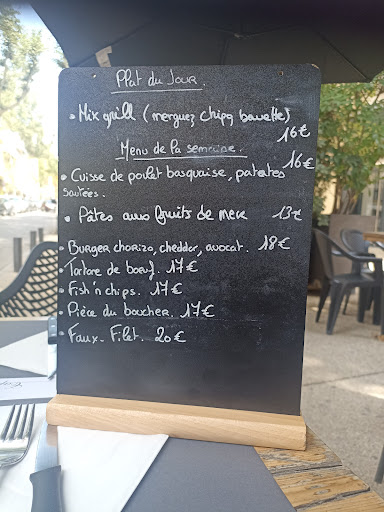 Plat du Jour.
• Mix grill (merguez, chipo, bavette)
16€
Menu de la semaine.
• Cuisse de poulet basquaise, patates 16€
sautées.
• Pâtes aux fruits de mer 13€
• Burger chorizo, cheddar, avocat. 18€
• Tartare de bœuf. 17€
• Fish'n chips. 17€
• Pièce du boucher. 17€
• Faux-Filet. 20€